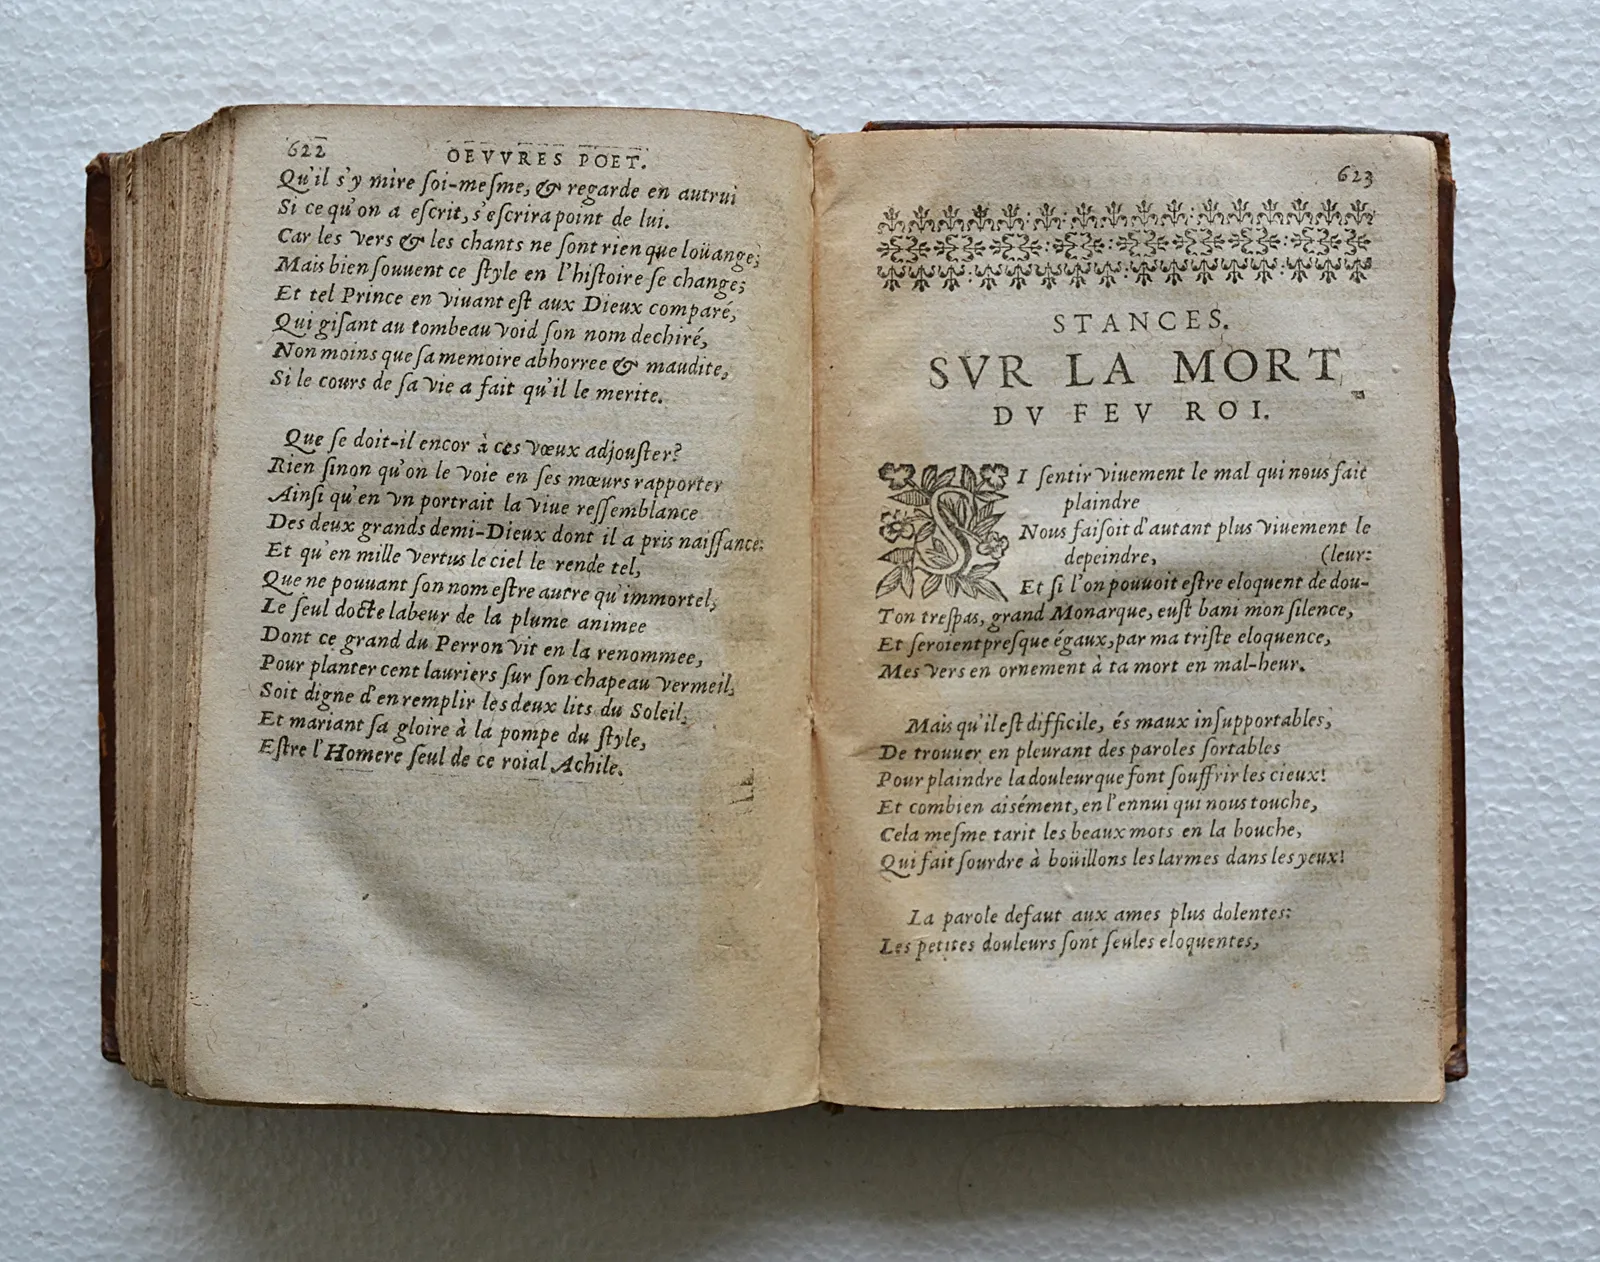 622
OEVVRES POET.
Qu'il s'y mire ſoi-meſme, & regarde en autrui
Si ce qu'on a eſcrit, s'eſcrira point de lui.
Car les vers & les chants ne ſont rien que loüange;
Mais bien ſouuent ce ſtyle en l'hiſtoire ſe change;
Et tel Prince en viuant eſt aux Dieux comparé,
Qui giſant au tombeau void ſon nom dechiré,
Non moins que ſa memoire abhorree & maudite,
Si le cours de ſa vie a fait qu'il le merite.
Que ſe doit-il encor à ces vœux adjouſter?
Rien ſinon qu'on le voie en ſes mœurs rapporter
Ainſi qu'en vn portrait la viue reſſemblance
Des deux grands demi-Dieux dont il a pris naiſſance:
Et qu'en mille vertus le ciel le rende tel,
Que ne pouuant ſon nom eſtre autre qu'immortel,
Le ſeul docte labeur de la plume animee
Dont ce grand du Perron vit en la renommee,
Pour planter cent lauriers ſur ſon chapeau vermeil,
Soit digne d'en remplir les deux lits du Soleil,
Et mariant ſa gloire à la pompe du ſtyle,
Eſtre l'Homere ſeul de ce roial Achile.
623
STANCES.
SVR LA MORT
DV FEV ROI.
SI ſentir viuement le mal qui nous fait
plaindre
Nous faiſoit d'autant plus viuement le
depeindre, (leur:
Et ſi l'on pouuoit eſtre eloquent de dou-
Ton treſpas, grand Monarque, euſt bani mon ſilence,
Et ſeroient preſque égaux, par ma triſte eloquence,
Mes vers en ornement à ta mort en mal-heur.
Mais qu'il eſt difficile, és maux inſupportables,
De trouuer en pleurant des paroles ſortables
Pour plaindre la douleur que font ſouffrir les cieux!
Et combien aisément, en l'ennui qui nous touche,
Cela meſme tarit les beaux mots en la bouche,
Qui fait ſourdre à boüillons les larmes dans les yeux!
La parole defaut aux ames plus dolentes:
Les petites douleurs ſont ſeules eloquentes,